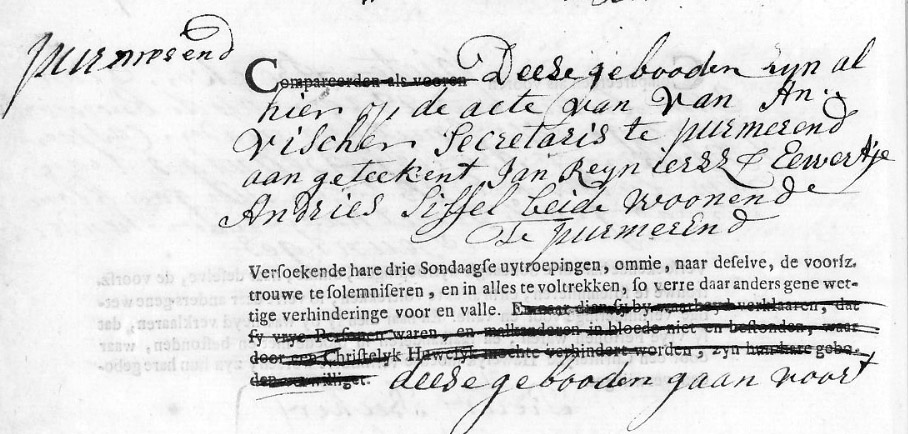 purmerend
Compareerden als vooren Deese gebooden zyn al
hier op de acte van van An.
Vischer Secretaris te purmerend
aangeteekent Jan Reyniersz & Eewertje
Andries Sissel beide woonende
te purmerend
Versoekende hare drie Sondaagse uytroepingen, omme, naar deselve, de voorsz.
trouwe te solemniseren, en in alles te voltrekken, so verre daar anders gene wet-
tige verhinderinge voor en valle. En naar dien sy by waarheyd verklaaren, dat
sy vrye Persoonen waren, en malkanderen in bloede niet en bestonden, waar
door een Christelyk Huwelyk mochte verhindert worden, zyn hun hare gebo-
den verwilliget. deese gebooden gaan voort